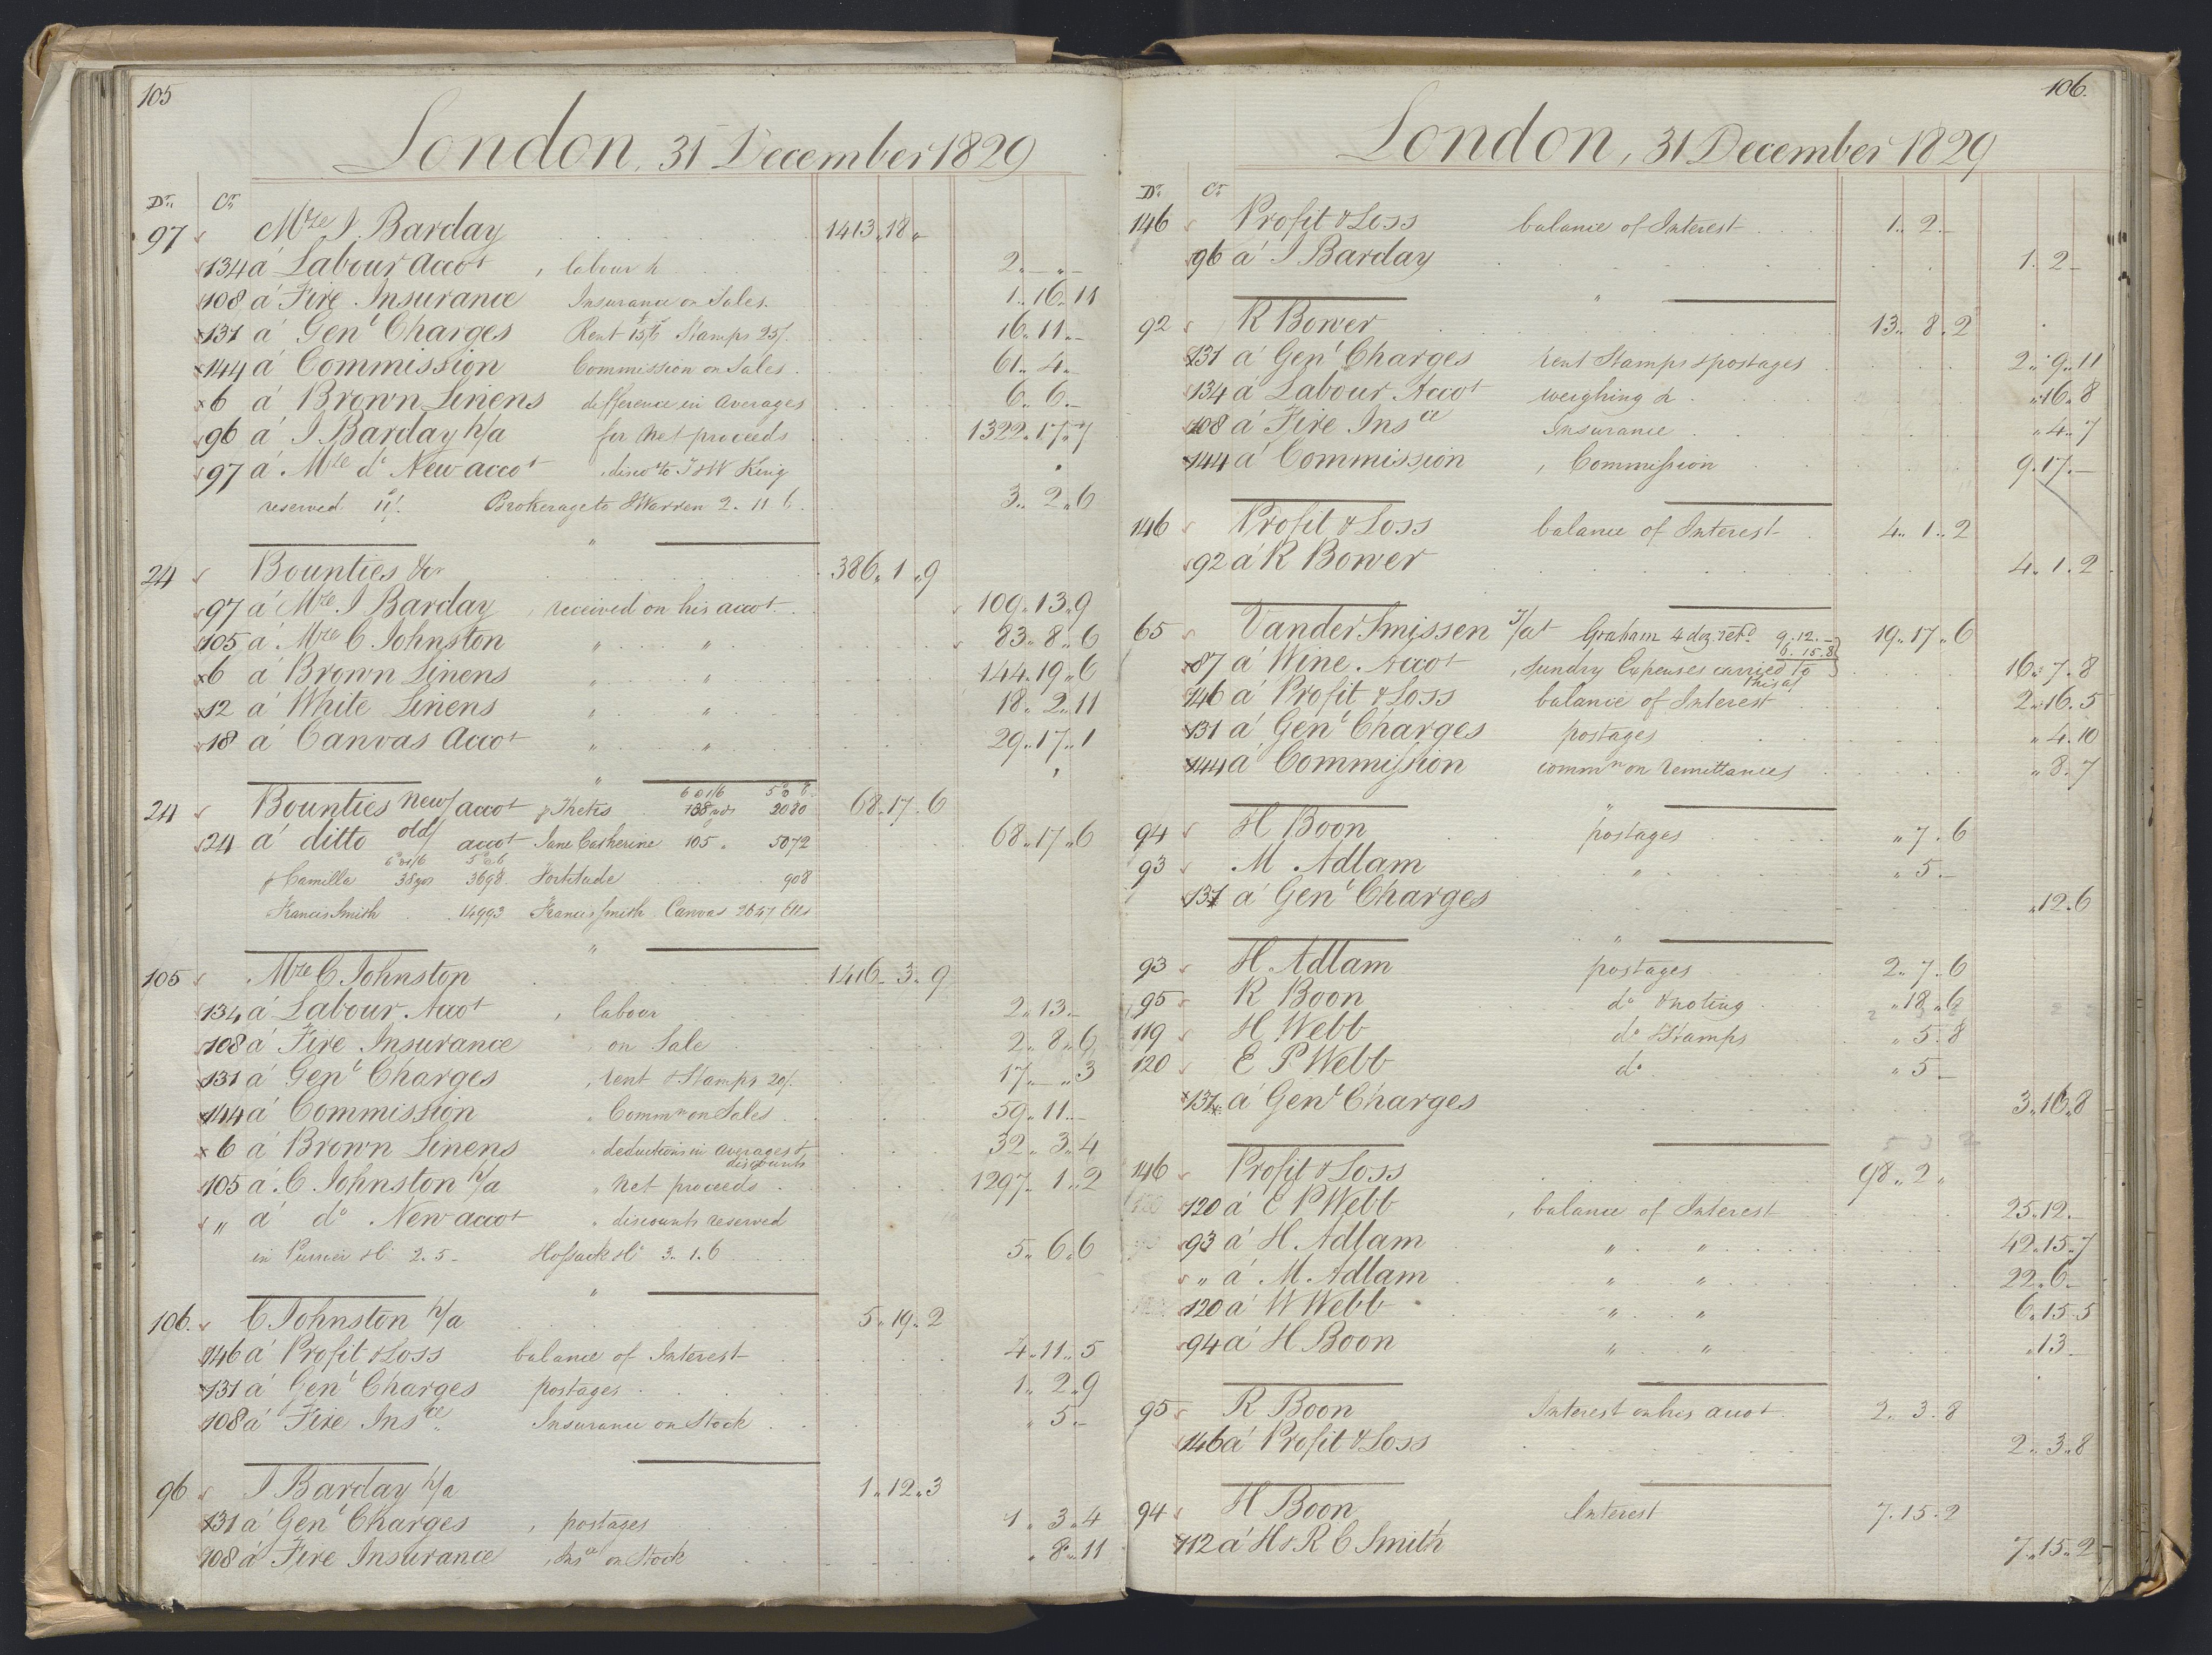 105
London, 31 December 1829
Dr. Cr.
97 Mze I. Barday 1413 " 18 "
134 a' Labour Accot , labour &c 2 " — " —
108 a' Fire Insurance Insurance on Sales. 1 " 16 " 11
131 a' Genl Charges Rent Stamps 25/. 16 " 11 " —
144 a' Commission Commission on Sales. 61 " 4 " —
6 a' Brown Linens difference in Averages 6 " 6 " —
96 a' I Barday n/a for Net proceeds 1322 " 17 " 7
97 a' Mze do New accot disco to J & W King
reserved 11/. Brokerage to S Warren 2 . 11 6 . 3 " 2 " 6
24 Bounties &c 386 " 1 " 9
97 a' Mze I Barday , received on his accot 109 " 13 " 9
105 a' Mze C Johnston " " 83 " 8 " 6
6 a' Brown Linens " " 144 " 19 " 6
12 a' White Linens " " 18 " 2 " 11
18 a' Canvas Accot " " 29 " 17 " 1
24 Bounties new/ accot p Thetis 138 yds 2080 68 . 17 . 6
24 a' ditto old/ accot Jane Catherine 105 " 5072 68 " 17 " 6
p Camilla 38 yds 3698 Fortitude 908
Francis Smith 14993 Francis Smith Canvas 2647 Ells
105 Mze C Johnston 1416 " 3 " 9
134 a' Labour Accot , labour 2 " 13 " —
108 a' Fire Insurance on Sale 2 " 8 " 6
131 a' Genl Charges , rent & Stamps 20/. 17 " — " 3
144 a' Commission " Commn on Sales 59 " 11 " —
6 a' Brown Linens " deductions in averages & discounts 32 " 3 " 4
105 a' C Johnston n/a " Net proceeds 1297 " 1 " 2
" a' do New accot " discounts reserved
in Purrier & Co 2 . 5 — Hossack & Co 3 . 1 . 6 5 " 6 " 6
106 . C Johnston n/a 5 " 19 " 2
146 a' Profit & Loss balance of Interest 4 " 11 " 5
131 a' Genl Charges postages 1 " 2 " 9
108 a' Fire Insce Insurance on Stock " 5 " —
96 I Barday n/a 1 " 12 " 3
131 a' Genl Charges , postages 1 " 3 " 4
108 a' Fire Insurance , Insce on Stock " 8 " 11
106.
London, 31 December 1829
Dr. Cr.
146 Profit & Loss balance of Interest 1 " 2 " —
96 a' I Barday 1 . 2 —
92 R Bower 13 " 8 " 2
131 a' Genl Charges rent Stamps & postages 2 " 9 " 11
134 a' Labour Accot weighing &c " 16 " 8
108 a' Fire Insce Insurance " 4 " 7
144 a' Commission , Commission 9 . 17 . —
146 Profit & Loss balance of Interest 4 " 1 " 2
92 a' R Bower 4 . 1 . 2
65 Vander Smissen Graham 4 doz retd 9 . 12 . — 19 " 17 " 6
6 . 15 . 8
87 a' Wine Accot , sundry Expenses carried to this a/ 16 " 7 . 8
146 a' Profit & Loss balance of Interest 2 " 16 . 5
131 a' Genl Charges postages " 4 . 10
144 a' Commission commn on remittances " 8 . 7
94 H Boon postages " 7 . 6
93 M Adlam " " 5 . —
131 a' Genl Charges " 12 . 6
93 H Adlam postages 2 " 7 . 6
95 R Boon do & noting " 18 " 6
119 H Webb do & Stamps " 5 . 8
120 E P Webb do " 5 —
131 a' Genl Charges 3 " 16 " 8
146 Profit & Loss 98 " 2 "
120 a' E P Webb , balance of Interest 25 " 12 . —
93 a' H Adlam " " 42 . 15 " 7
" a' M Adlam " " 22 . 6 —
120 a' W Webb " " 6 . 15 . 5
94 a' H Boon " " " 13 —
95 R Boon Interest on his accot 2 . 3 . 8
146 a' Profit & Loss 2 . 3 " 8
94 H Boon Interest 7 . 15 . 2
112 a' H & R C Smith 7 " 15 " 2